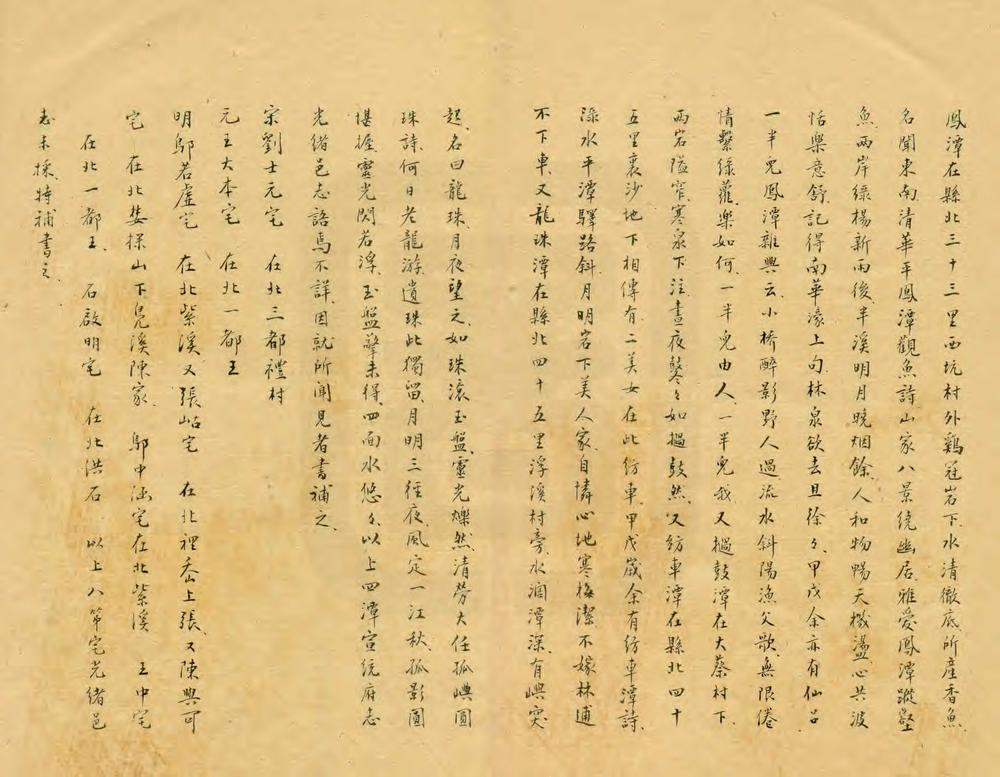 鳳潭在縣北三十三里西坑村外鷄冠岩下、水清徹底所產香魚、
名聞東南清華平鳳潭觀魚詩、山家八景繞幽居、雅愛鳳潭蹤
魚、兩岸綠楊新雨後、半溪明月曉烟餘、人和物暢天機盪、心共波
恬樂意舒、記得南華濠上句、林泉欲去且徐々、甲戌余亦有仙呂
一半兒鳳潭雜興云、小橋醉影野人過、流水斜陽漁父歌、無限倦
情繫綠蘿、樂如何、一半兒由人、一半兒我、又撾鼓潭在大蔡村下、
兩岩隘窄、寒泉下注、晝夜鼕々如撾鼓然、又紡車潭在縣北四十
五里裏沙地下、相傳有二美女在此紡車、甲戌歲余有紡車潭詩、
渌水平潭驛路斜、月明岩下美人家、自憐心地寒梅潔、不嫁林逋
不下車、又龍珠潭在縣北四十五里浮溪村旁、水濶潭深、有嶼突
起、名曰龍珠、月夜望之、如珠滾玉盤、靈光爍然、清勞大任孤嶼圓
珠詩、何日老龍游、遺珠此獨留、月明三徑夜、風定一江秋、孤影圓
堪握、靈光閃若浮、玉盤擎未得、四面水悠々、以上四潭宣統府志
光緒邑志諮焉不詳、因就所聞見者書補之、
宗劉士元宅 在北三都禮村
元王大本宅 在北一都王
明鄔若虛宅 在北紫溪、又張岵宅 在北裡岙上張、又陳興可
宅 在北婪探山下兒溪陳家 鄔中涵宅在北紫溪 王中宅
在北一都王、 石啟明宅 在北洪石 以上八第宅光緒邑
志未採、特補書之、